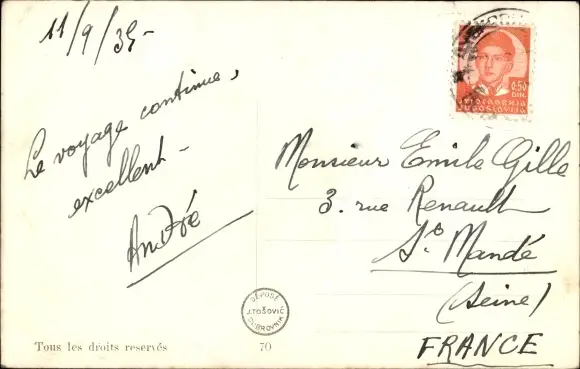 11/9/35-
Le voyage continue,
excellent-
André
Monsieur Emile Gille
3. rue Renault
St. Mandé
(Seine)
FRANCE
0.50
DIN.
ЈУГОСЛАВИЈА
JUGOSLAVIJA
DÉPOSÉ
J. TOŠOVIĆ
DUBROVNIK
Tous les droits reservés
70